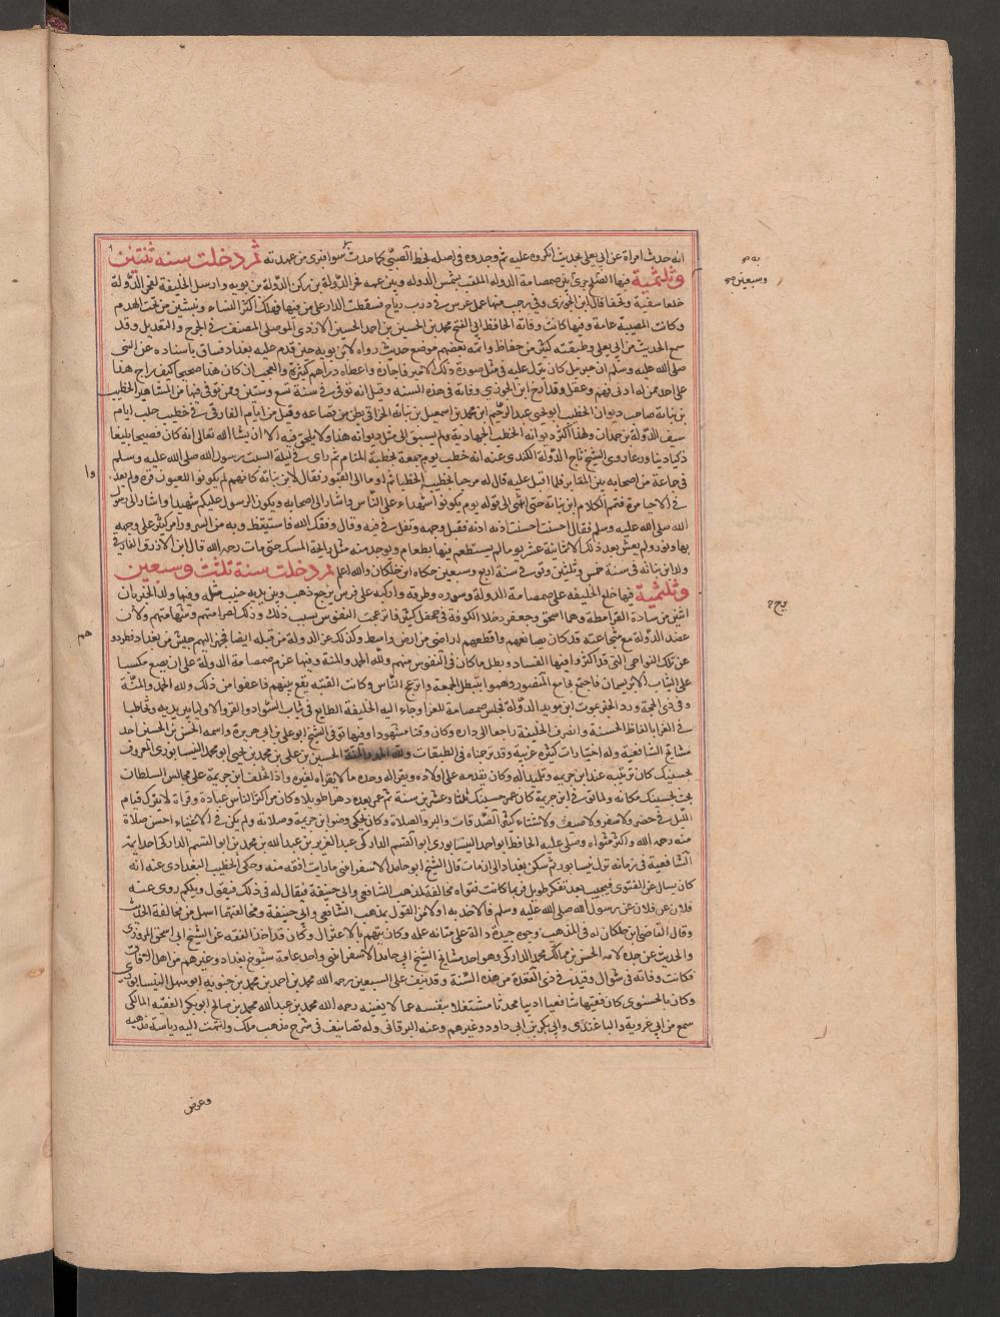 انه حدث امراة عن ابي يعلى بحديث انكروه عليه ثم وجدوه في اصله بخط الصبي كما حدث سوا فبرئ من عهدته ثم دخلت سنه ثنتين
وثلثمية فيها الصلح جرى بين صمصامة الدوله الملقب بشمس الدوله وبين عمه فخر الدولة بن ركن الدولة بن بويه وارسل الخليفة لفخر الدولة
خلعا سنية وتحفا قال ابن الجوزي وفي رجب منها عمل عرس في درب رياح فسقطت الدار على من فيها فهلك اكثر النساء ونبشن من تحت الهدم
وكانت المصيبة عامة وفيها كانت وفاته الحافظ ابي الفتح محمد بن الحسين بن احمد الحسين الازدي الموصلي المصنف في الجرح والتعديل وقد
سمع الحديث من ابي يعلى وطبقته كثير من حفاظ واتهمه بعضهم بوضع حديث رواه لابن بويه حين قدم عليه بغداد فساق باسناده عن النبي
صلى الله عليه وسلم ان جبريل كان ينزل عليه في مثل صورة ذلك الامير فاجازه واعطاه دراهم كثيرة والعجب ان كان هذا صحيحا كيف راج هذا
على احد ممن له ادنى فهم وعقل وقد ارخ ابن الجوزي وفاته في هذه السنه وقيل انه توفي في سنة تسع وستين وممن توفي فيها من المشاهير الخطيب
بن نباتة صاحب ديوان الخطب ابو يحيى عبد الرحيم ابن محمد بن اسمعيل بن نباتة الحذاقي بطن من قضاعه وقيل من اياد الفارقي خطيب حلب ايام
سيف الدولة بن حمدان ولهذا اكثر ديوانه الخطب الجهادية ولم يسبق الى مثل ديوانه هذا ولا يلحق فيه الا ان يشا الله تعالى انه كان فصيحا بليغا
ذكيا دينا ورعا روى الشيخ تاج الدولة الكندي عنه انه خطب يوم جمعة بخطبة المنام ثم راى في ليلة السبت رسول الله صلى الله عليه وسلم
في جماعة من اصحابه بين المقابر فلما اقبل عليه قال له مرحبا بخطيب الخطبا ثم اوما الى القبور فقال لابن نباتة كانهم لم يكونوا للعيون قرة ولم يعدوا
في الاحيا مرة فتمم الكلام ابن نباتة حتى انتهى الى قوله يوم يكونوا شهداء على الناس واشار الى اصحابه ويكون الرسول عليكم شهيدا واشار الى رسول
الله صلى الله عليه وسلم فقال احسنت احسنت ادنه ادنه فقبل وجهه وتفل في فيه وقال وفقك الله فاستيقظ وبه من السرور امر كبير على وجهه
بها ونور ولم يعش بعد ذلك الا ثمانية عشر يوما لم يستطعم فيها بطعام ويوجد منه مثل رائحة المسك حتى مات رحمه الله قال ابن الازرق الفارقي
ولد ابن نباتة في سنة خمس وثلثين وتوفي سنة اربع وسبعين حكاه ابن خلكان والله اعلم ثم دخلت سنة ثلث وسبعين
وثلثمية فيها خلع الخليفه على صمصامة الدوله وسوره وطوقه واركبه على فرس بسرج ذهب وبين يديه جنيب مثله وفيها ورد الخبر بان
اثنين من سادة القرامطة وهما اسحق وجعفر دخلا الكوفة في جحفل كبير فانزعجت النفوس بسبب ذلك وذلك لصرامتهم وشهامتهم ولان
عضد الدولة مع شجاعته قد كان يصانعهم واقطعهم اراضي من ارض واسط وكذلك عز الدولة من قبله ايضا فجهز اليهم جيش من بغداد فطردوهم
عن تلك النواحي التي قد اكثروا فيها الفساد وبطل ما كان في النفوس منهم ولله الحمد والمنة وفيها عزم صمصامة الدولة على ان يضع مكسا
على الثياب الابريسمان فاجتمع بجامع المنصور وهموا بتبطل الجمعة وانزعج الناس وكانت الفتنه تقع بينهم فاعفوا من ذلك ولله الحمد والمنة
وفي ذي الحجة ورد الخبر بموت ابن مويد الدولة فجلس صمصامة للعزا وجاء اليه الخليفة الطايع في ثياب السواد والقراء والاولياء بين يديه وتخاطبا
في العزا بالفاظ الحسنة وانصرف الخليفة راجعا الى داره وكان وقتا مشهودا وفيها توفي الشيخ ابو علي بن ابي هريرة واسمه الحسن بن الحسين احد
مشايخ الشافعية وله اختيارات كثيره غريبة وقد ترجمناه في الطبقات ولله الحمد والمنة الحسين بن علي بن محمد بن يحيى ابو محمد النيسابوري المعروف
بحسينك كان تربيته عند ابن خزيمه وتلميذا له وكان يقدمه على اولاده ويقرا له وحده ما لا يقراه لغيره واذا تخلف ابن خزيمة على مجالس السلطان
بعث بحسينك مكانه ولما توفي ابن خزيمة كان عمر حسينك ثلثا وعشرين سنة ثم عمر بعده دهرا طويلا وكان من اكثر الناس عبادة وقراة لا يترك قيام
الليل في حضر ولا سفر ولا صيف ولا شتاء كثير الصدقات والبر والصلاة وكان يحكي وضو ابن خزيمة وصلاته ولم يكن في الاغنياء احسن صلاة
منه رحمه الله واكثر مثواه وصلى عليه الحافظ ابو احمد النيسابوري ابو القسم الداركي عبد العزيز بن عبد الله بن محمد بن ابو القسم الداركي احد ايمة
الشافعية في زمانه نزل نيسابور ثم سكن بغداد الى ان مات قال الشيخ ابو حامد الاسفرايني ما رايت افقه منه وحكى الخطيب البغدادي عنه انه
كان يسال عن الفتوى فيجيب بعد تفكر طويل فربما كانت فتواه مخالفة لمذهب الشافعي وابي حنيفة فيقال له في ذلك فيقول ويلكم روى عنه
فلان عن فلان عن رسول الله صلى الله عليه وسلم فالاخذ به اولا من القول بمذهب الشافعي وابي حنيفة ومخالفتهما اسهل من مخالفة الحديث
وقال القاضي ابن خلكان له في المذهب وجوه جيدة دالة على متانه علمه وكان يتهم بالاعتزال وكان قد اخذ الفقه عن الشيخ ابي اسحق المروزي
والحديث عن جده لامه الحسن بن محمد الداركي وهو احد مشايخ الشيخ ابي حامد الاسفرايني واحد عامة شيوخ بغداد وغيرهم من اهل الافاق
فكانت وفاته في شوال وقيل في ذي القعدة من هذه السنة وقد نيف على السبعين رحمه الله محمد بن احمد بن محمد بن حسنويه ابو سهل النيسابوري
وكان بالحسنوي كان فقيها شافعيا اديبا محدثا مشتغلا بنفسه عما لا يعنيه رحمه الله محمد بن عبد الله محمد بن صالح ابو بكر الفقيه المالكي
سمع من ابي عروبة والباغندي وابي بكر بن ابي داود وغيرهم وعنه البرقاني وله تصانيف في شرح مذهب ملك وانتهت اليه رياسة مذهبه
وعرض
وسبعين
وا
هم